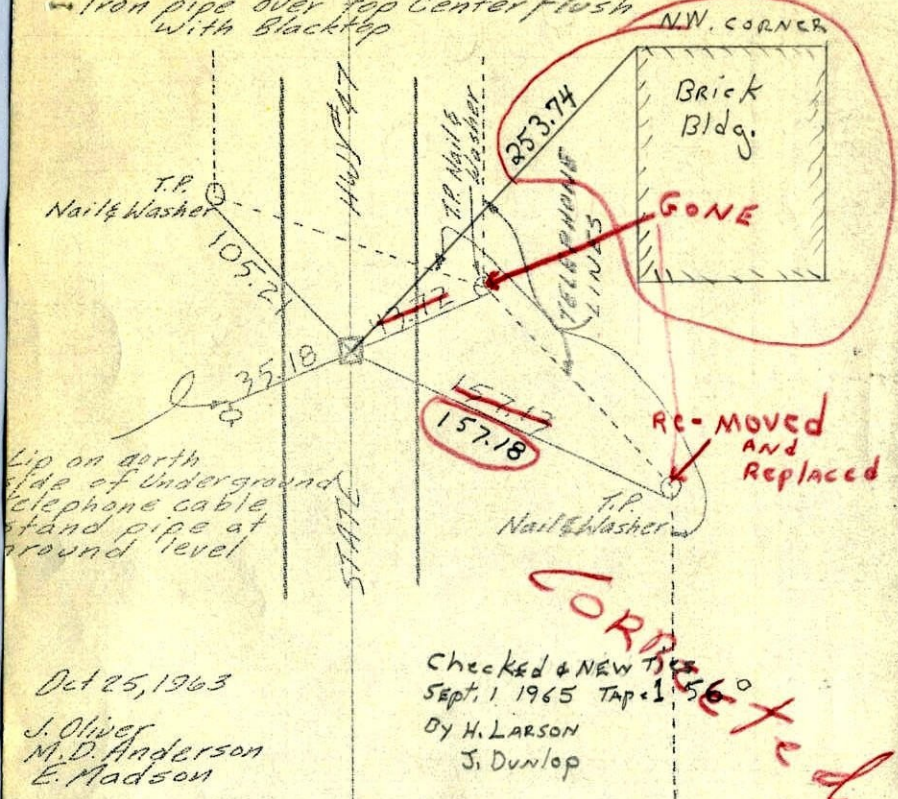 Iron pipe over Top Center Flush
With Blacktop
N.W. CORNER
Brick
Bldg.
253.74
HWY #47
T.P. Nail &
Washer
TELEPHONE
LINES
T.P.
Nail & Washer
GONE
105.21
35.18
157.18
RE-MOVED
AND
REPlacED
Lip on north
side of Underground
telephone cable
stand pipe at
ground level
T.P.
Nail & Washer
STATE
CORRECTed
Oct 25, 1963
J. Oliver
M.D. Anderson
E. Madson
Checked & NEW Ties
Sept. 1 1965
By H. LARSON
J. Dunlop